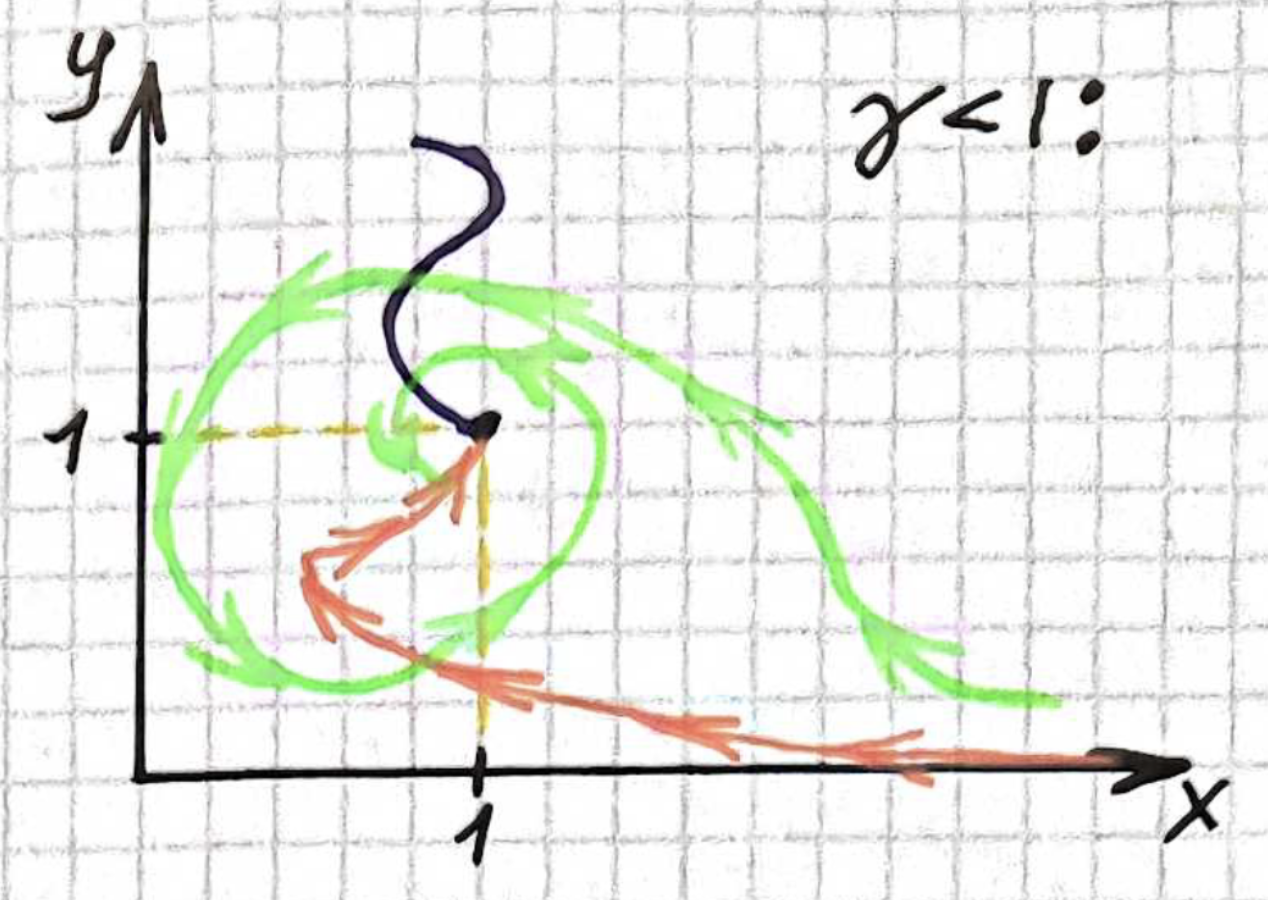 y
γ < 1:
1
1
x